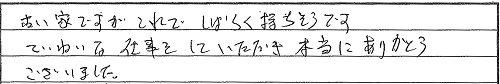 古い家ですが これで しばらく持ちそうです
ていねいな 仕事をして いただき 本当に ありがとう
ございました。